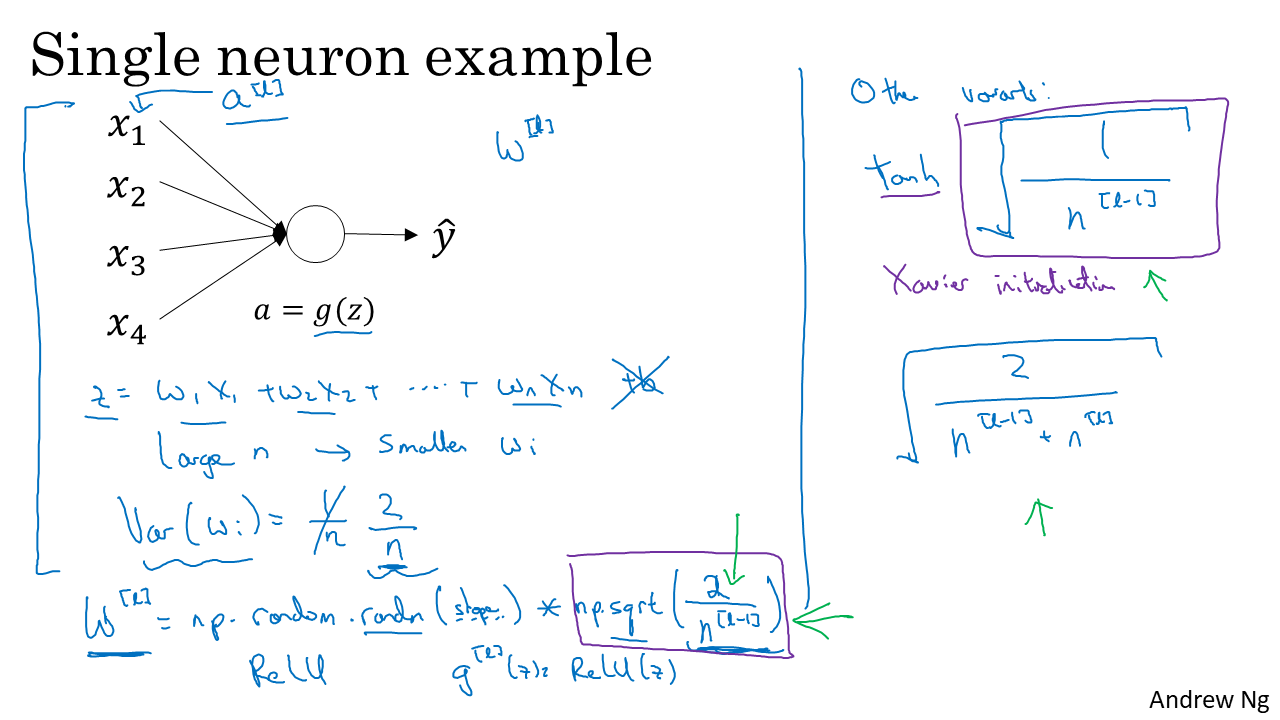 Single neuron example
a^[l]
x₁
x₂
x₃
x₄
ŷ
a = g(z)
w^[l]
z = w₁x₁ + w₂x₂ + ..... + wₙxₙ +b
Large n → Smaller wᵢ
Var(wᵢ) = 1/n 2/n
W^[l] = np.random.randn(shape) * np.sqrt(2/n^[l-1])
ReLU g^[l](z) = ReLU(z)
Other variants:
tanh √(1/n^[l-1])
Xavier initialization ↑
√(2/(n^[l-1] + n^[l]))
↑
Andrew Ng